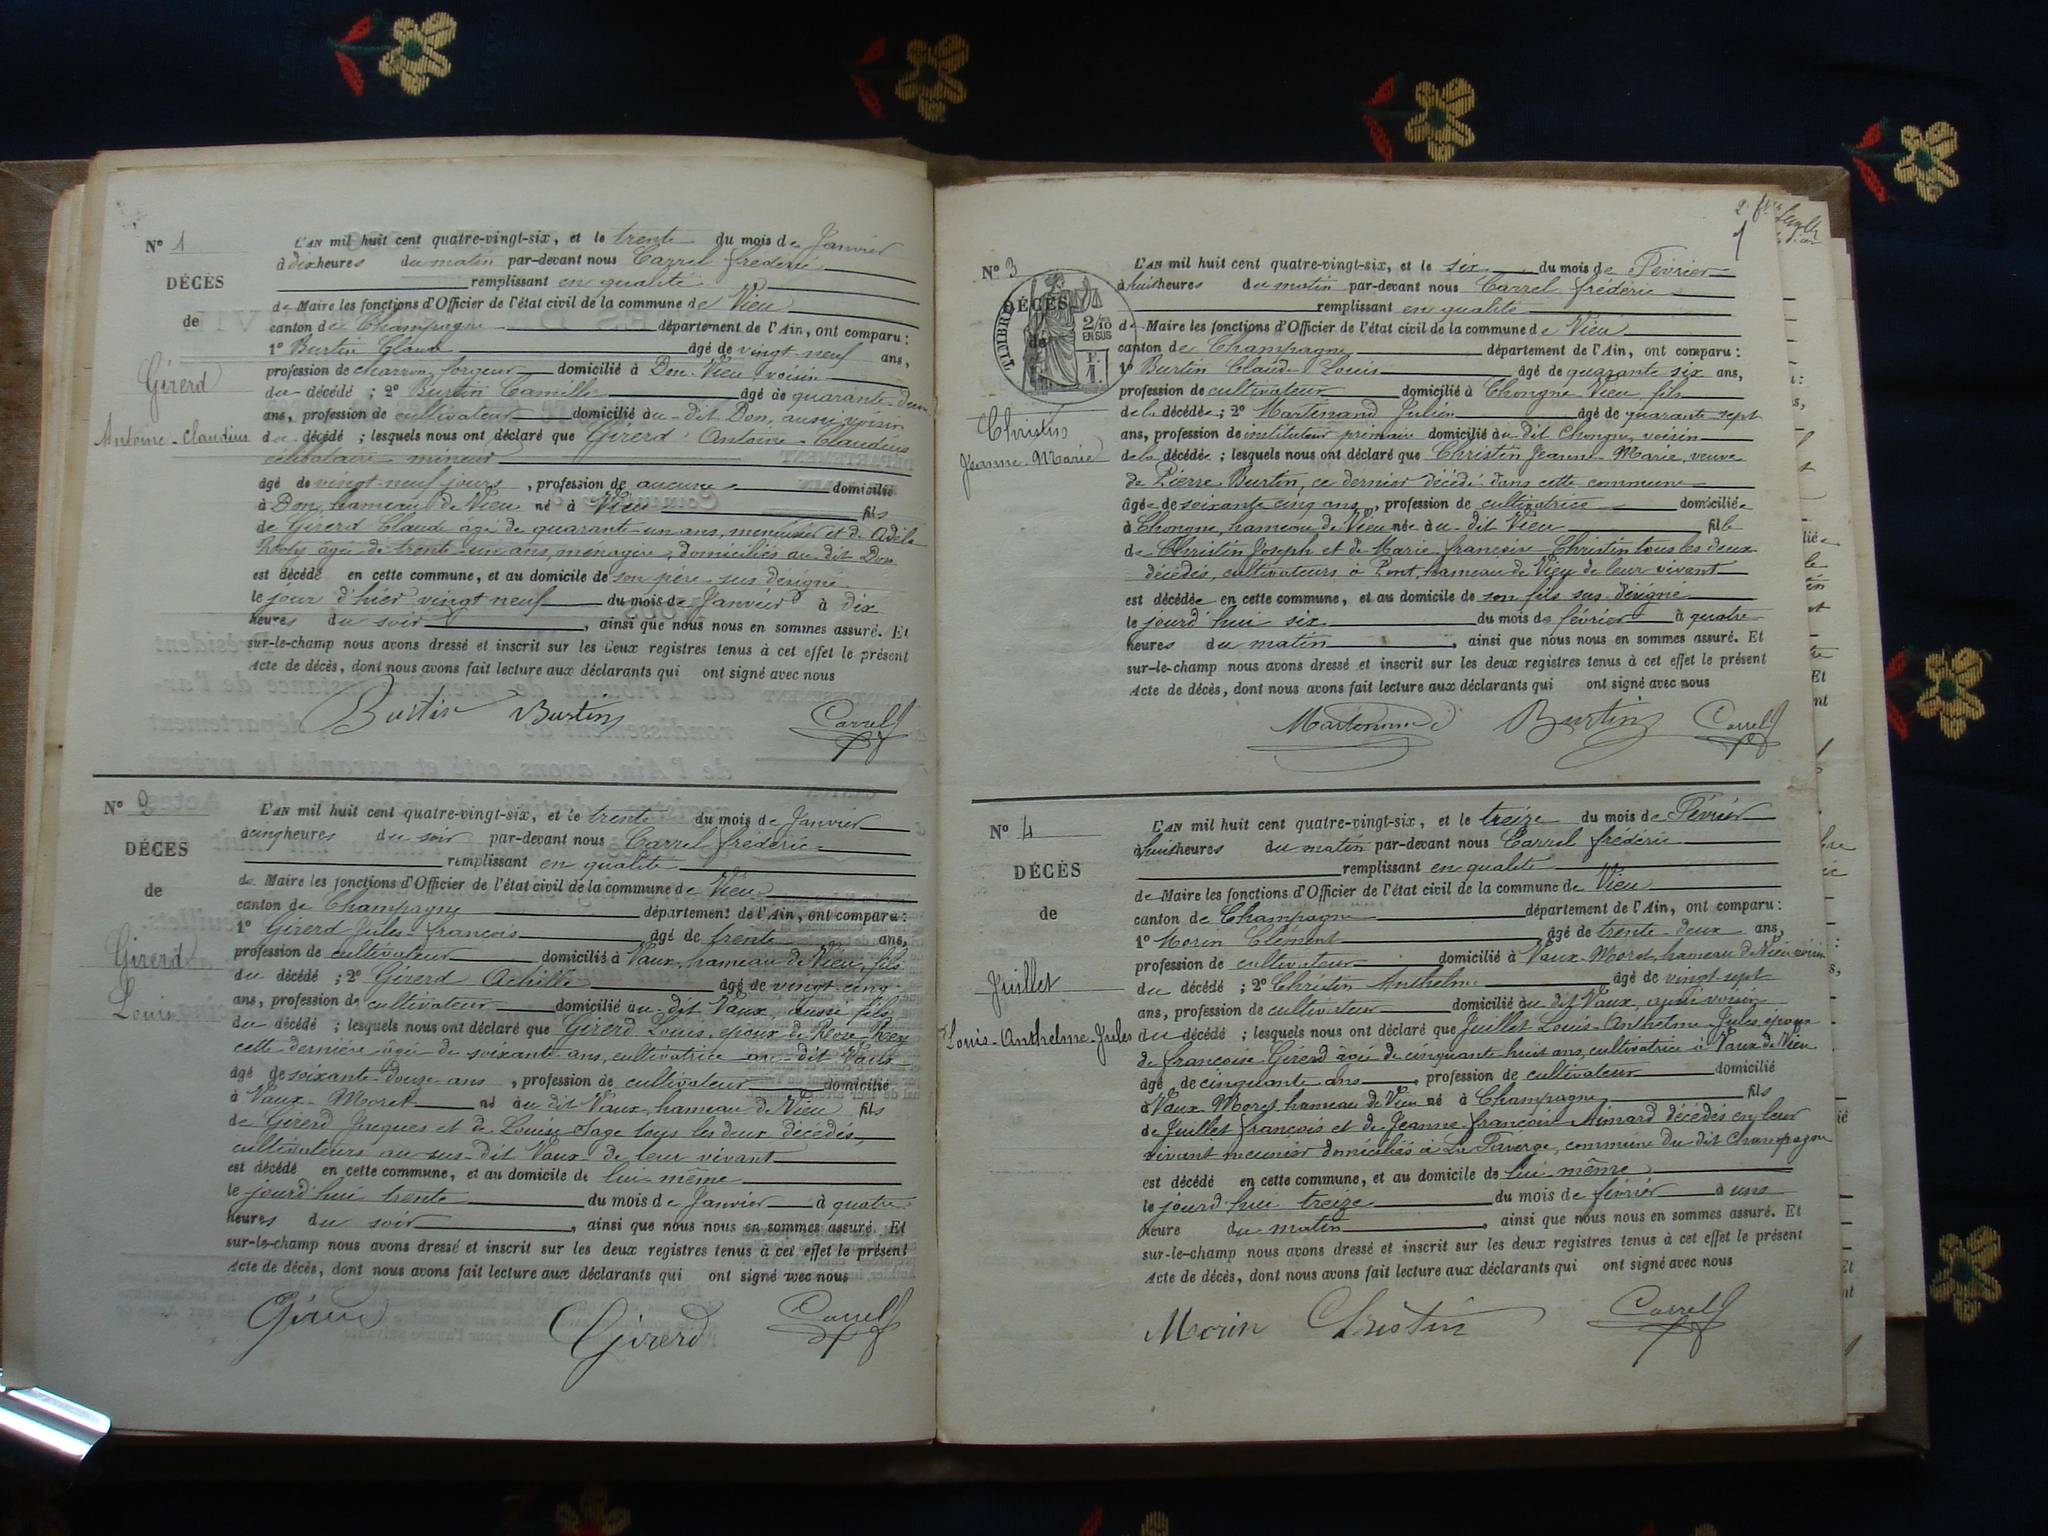 N° 1
DÉCÈS
de
Girerd
Antoine-Claudius
L'AN mil huit cent quatre-vingt-six, et le trente du mois de Janvier
à dix heures du matin par-devant nous Carrel frédéric
remplissant en qualité
de Maire les fonctions d'Officier de l'état civil de la commune de Vieu
canton de Champagne département de l'Ain, ont comparu :
1° Burtin Claude âgé de vingt-neuf ans,
profession de charron forgeur domicilié à Don-Vieu, voisin
du décédé ; 2° Burtin Camille âgé de quarante-deux
ans, profession de cultivateur domicilié au-dit Don, aussi voisin
du décédé ; lesquels nous ont déclaré que Girerd Antoine-Claudius
célibataire mineur
âgé de vingt-neuf jours, profession de aucune domicilié
à Don, hameau de Vieu né à Vieu fils
de Girerd Claude âgé de quarante-un ans, menuisier et de Adèle
âgée de trente-un ans, ménagère, domiciliés au dit Don
est décédé en cette commune, et au domicile de son père sus désigné
le jour d'hier vingt neuf du mois de Janvier à dix
heures du soir, ainsi que nous nous en sommes assuré. Et
sur-le-champ nous avons dressé et inscrit sur les deux registres tenus à cet effet le présent
Acte de décès, dont nous avons fait lecture aux déclarants qui ont signé avec nous
Burtin Burtin Carrel
N° 2
DÉCÈS
de
Girerd
Louis
L'AN mil huit cent quatre-vingt-six, et le trente du mois de Janvier
à cinq heures du soir par-devant nous Carrel frédéric
remplissant en qualité
de Maire les fonctions d'Officier de l'état civil de la commune de Vieu
canton de Champagne département de l'Ain, ont comparu :
1° Girerd Jules-françois âgé de trente ans,
profession de cultivateur domicilié à Vaux, hameau de Vieu, fils
du décédé ; 2° Girerd Achille âgé de vingt-cinq
ans, profession de cultivateur domicilié au-dit Vaux, aussi fils
du décédé ; lesquels nous ont déclaré que Girerd Louis, époux de
cette dernière âgée de soixante ans, cultivatrice au-dit Vaux
âgé de soixante-douze ans, profession de cultivateur domicilié
à Vaux-Moret né au dit Vaux, hameau de Vieu fils
de Girerd Jacques et de Louise Sage tous les deux décédés,
cultivateurs au sus-dit Vaux de leur vivant
est décédé en cette commune, et au domicile de lui-même
le jourd'hui trente du mois de Janvier à quatre
heures du soir, ainsi que nous nous en sommes assuré. Et
sur-le-champ nous avons dressé et inscrit sur les deux registres tenus à cet effet le présent
Acte de décès, dont nous avons fait lecture aux déclarants qui ont signé avec nous
Girerd Girerd Carrel
1
N° 3
DÉCÈS
de
TIMBRE
2/10
EN SUS
Christin
Jeanne-Marie
L'AN mil huit cent quatre-vingt-six, et le six du mois de Février
à huit heures du matin par-devant nous Carrel frédéric
remplissant en qualité
de Maire les fonctions d'Officier de l'état civil de la commune de Vieu
canton de Champagne département de l'Ain, ont comparu :
1° Burtin Claude Louis âgé de quarante six ans,
profession de cultivateur domicilié à Chongne-Vieu, fils
de la décédée ; 2° Martenand Julien âgé de quarante-sept
ans, profession de instituteur primaire domicilié au dit Chongne, voisin
de la décédée ; lesquels nous ont déclaré que Christin Jeanne-Marie, veuve
de Pierre Burtin, ce dernier décédé dans cette commune
âgée de soixante cinq ans, profession de cultivatrice domiciliée
à Chongne, hameau de Vieu née au-dit Vieu fille
de Christin Joseph et de Marie-françoise Christin tous les deux
décédés, cultivateurs à Pont, hameau de Vieu de leur vivant
est décédée en cette commune, et au domicile de son fils sus-désigné
le jourd'hui six du mois de février à quatre
heures du matin, ainsi que nous nous en sommes assuré. Et
sur-le-champ nous avons dressé et inscrit sur les deux registres tenus à cet effet le présent
Acte de décès, dont nous avons fait lecture aux déclarants qui ont signé avec nous
Martenand Burtin Carrel
N° 4
DÉCÈS
de
Juillet
Louis-Anthelme-Jules
L'AN mil huit cent quatre-vingt-six, et le treize du mois de Février
à huit heures du matin par-devant nous Carrel frédéric
remplissant en qualité
de Maire les fonctions d'Officier de l'état civil de la commune de Vieu
canton de Champagne département de l'Ain, ont comparu :
1° Morin Clément âgé de trente-deux ans,
profession de cultivateur domicilié à Vaux-Moret, hameau de Vieu voisin
du décédé ; 2° Christin Anthelme âgé de vingt-sept
ans, profession de cultivateur domicilié au dit Vaux, aussi voisin
du décédé ; lesquels nous ont déclaré que Juillet Louis-Anthelme-Jules, époux
de françoise Girerd âgée de cinquante huit ans, cultivatrice à Vaux de Vieu
âgé de cinquante ans, profession de cultivateur domicilié
à Vaux-Moret, hameau de Vieu né à Champagne fils
de Juillet françois et de Jeanne-françoise Aimard décédés en leur
vivant meunier domiciliés à La commune du dit Champagne
est décédé en cette commune, et au domicile de lui-même
le jourd'hui treize du mois de février à une
heure du matin, ainsi que nous nous en sommes assuré. Et
sur-le-champ nous avons dressé et inscrit sur les deux registres tenus à cet effet le présent
Acte de décès, dont nous avons fait lecture aux déclarants qui ont signé avec nous
Morin Christin Carrel